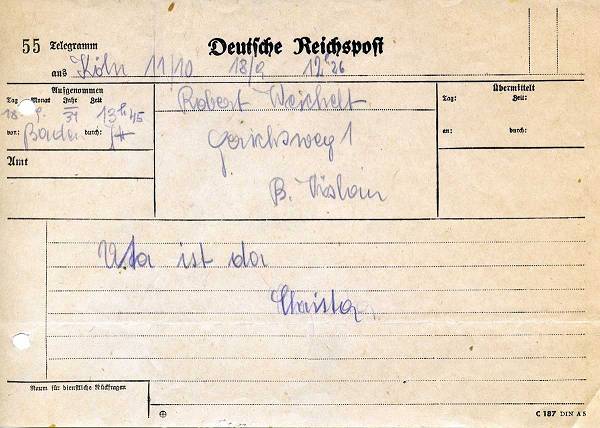 55 Telegramm Deutsche Reichspost
aus Köln 11/10 18/9 12 26
Aufgenommen
Tag Monat Jahr Zeit
18. 9. 13 h 45
von: Baden durch:
Amt
Robert Weichelt
1
B.
Übermittelt
Tag: Zeit:
an: durch:
Uta ist da
Christa
Raum für dienstliche Rückfragen
C 187 DIN A5